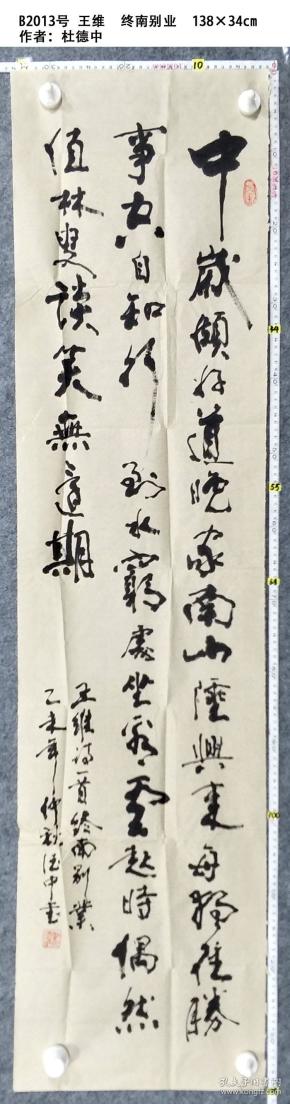 B2013号 王维 终南别业 138×34cm
作者：杜德中
中歲頗好道晚家南山陲興來每獨往勝
事空自知行到水窮處坐看雲起時偶然
值林叟談笑無還期
王維詩一首終南別業
乙未年仲秋德中書